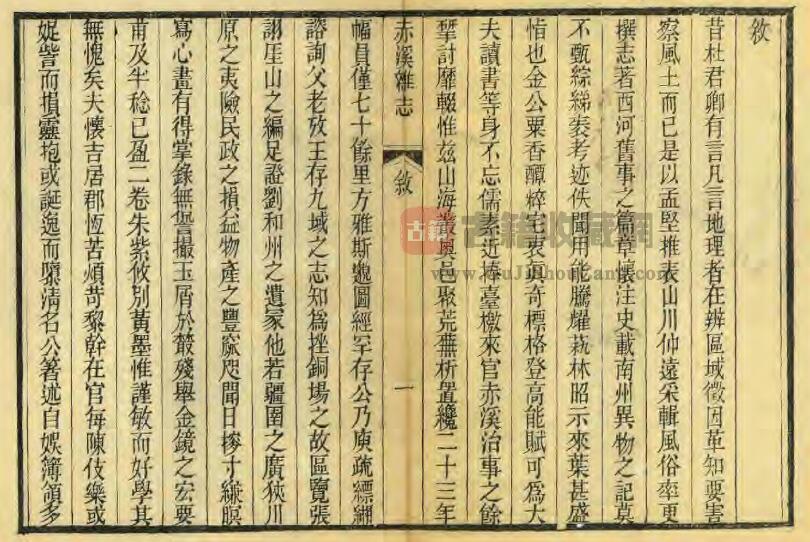 敘
昔杜君卿有言凡言地理者在辨區域徵因革知要害
察風土而已是以孟堅推表山川仲遠采輯風俗率更
撰志著西河舊事之篇章懷注史載南州異物之記莫
不甄綜緜袤考迹佚聞用能騰耀蓺林昭示來葉甚盛
恉也金公粟香醲粹宅衷眞奇標格登高能賦可爲大
夫讀書等身不忘儒素近捧臺檄來官赤溪治事之餘
揅討靡輟惟玆山海叢奧邑聚荒蕪析置纔二十三年
赤溪雜志 敘 一
幅員僅七十餘里方雅斯邈圖經罕存公乃庚疏縹緗
諮詢父老攷王存九域之志知爲挫銅場之故區覽張
詡厓山之編足證劉和州之遺冢他若疆圉之廣狹川
原之夷險民政之損益物產之豐窳咫聞日摻寸緣瞑
寫心畫有得掌錄無訾撮玉屑於叢殘舉金鏡之宏要
甫及半稔已盈二卷朱紫攸別黃墨惟謹敏而好學其
無愧矣夫懷吉居郡恆苦煩苛黎幹在官每陳伎樂或
娖訾而損靈抱或誕逸而隳淸名公箸述自娛簿領多
古籍收藏網
www.GuJiShouCang.com